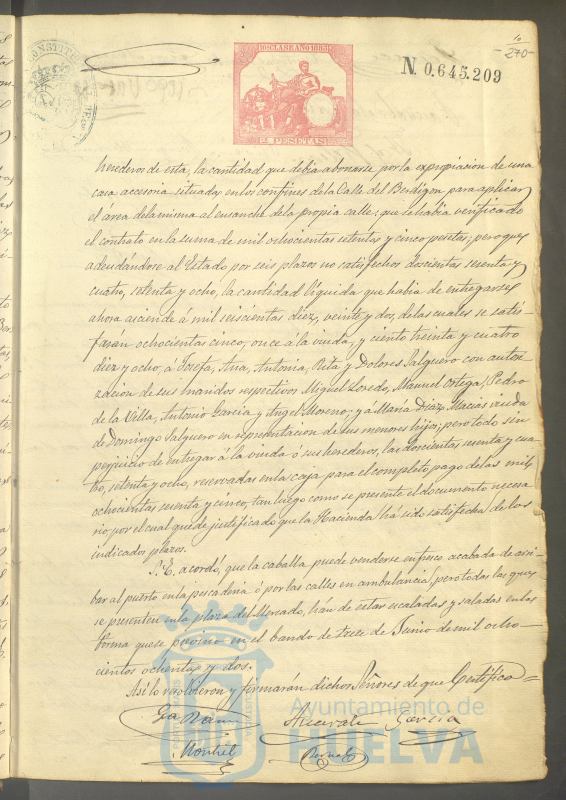 10
-270-
10ª CLASE AÑO 1883
2 PESETAS
N. 0.645.209
herederos de esta, la cantidad que debia abonarse por la expropiacion de una
casa accesoria situada en los confines de la Calle del Berdigon para aplicar
el área de la misma al ensanche de la propia calle; que se habia verificado
el contrato en la suma de mil ochocientas setenta y cinco pesetas; pero que
adeudándose al Estado por seis plazos no satisfechos doscientas sesenta y
cuatro, setenta y ocho, la cantidad líquida que habia de entregarse
ahora asciende á mil seiscientas diez, veinte y dos, de las cuales se satis-
farán ochocientas cinco, once á la viuda, y ciento treinta y cuatro
diez y ocho, á Josefa, Ana, Antonia, Rita y Dolores Salguero con autori-
zacion de sus maridos respectivos Miguel Loredo, Manuel Ortega, Pedro
de la Villa, Antonio Garcia y Angel Moreno; y á Maria Diaz Macias viuda
de Domingo Salguero en representacion de sus menores hijos; pero todo sin
perjuicio de entregar á la viuda ó sus herederos, las doscientas sesenta y cua
tro, setenta y ocho, reservadas en la caja para el completo pago de las mil
ochocientas setenta y cinco, tan luego como se presente el documento necesa
rio por el cual quede justificado que la Hacienda há sido satisfecha de los
indicados plazos.
S. E. acordó, que la caballa puede venderse en fresco acabada de arri-
bar al puerto en la pescaderia ó por las calles en ambulancia, pero todas las que
se presenten en la plaza del Mercado, han de estar escaladas y saladas en la
forma que se previno en el bando de trece de Junio de mil ocho-
cientos ochenta y dos.
Asi lo resolvieron y firmarán dichos Señores de que Certifico =
Garcia
Montiel
Bernal
Ayuntamiento de
HUELVA